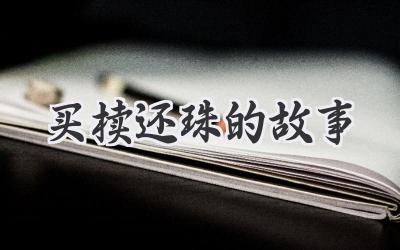 买椟还珠的故事